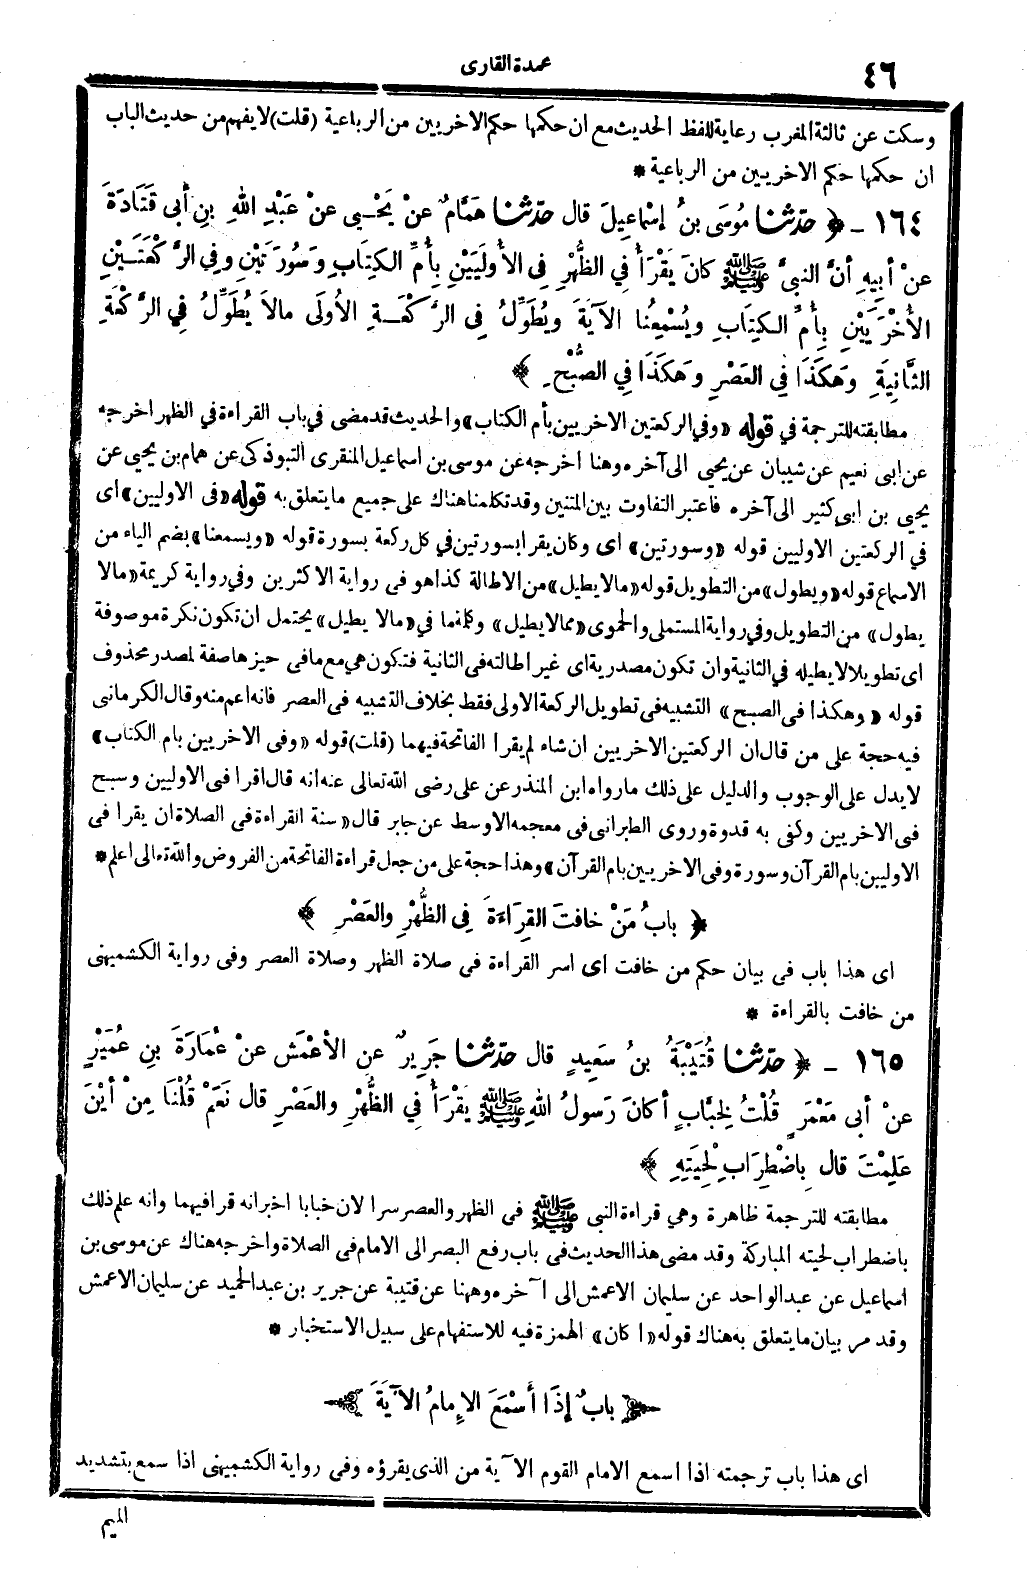 ٤٦
عمدة القارى
وسكت عن ثالثة المغرب رعاية للفظ الحديث مع ان حكمها حكم الاخريين من الرباعية (قلت) لا يفهم من حديث الباب
ان حكمها حكم الاخريين من الرباعية *
١٦٤ - ﴿ حدّثنا مُوسَى بنُ إسْماعِيلَ قال حدّثنا هَمَّامٌ عنْ يَحْيى عنْ عَبْدِ اللهِ بنِ أبى قَتَادَةَ
عنْ أبِيهِ أنَّ النبىَّ ﷺ كانَ يَقْرَأُ فِي الظُّهْرِ فِى الأُولَيَيْنِ بِأُمِّ الكِتَابِ وَسُورَتَيْنِ وفِي الرَّكْعَتَيْنِ
الأُخْرَيَيْنِ بِأُمِّ الكِتَابِ ويُسْمِعُنا الآيَةَ ويُطَوِّلُ فِى الرَّكْعَةِ الأُولَى مالاَ يُطَوِّلُ فِي الرَّكْعَةِ
الثَّانِيَةِ وَهكَذَا فِي العَصْرِ وَهكَذَا فِي الصُّبْحِ ﴾
مطابقته للترجمة في قوله «وفي الركعتين الاخريين بأم الكتاب» والحديث قد مضى في باب القراءة في الظهر اخرجه
عن ابى نعيم عن شيبان عن يحيى الى آخره وهنا اخرجه عن موسى بن اسماعيل المنقرى التبوذكى عن همام بن يحيى عن
يحيى بن ابى كثير الى آخره فاعتبر التفاوت بين المتنين وقد تكلمنا هناك على جميع ما يتعلق به قوله «فى الاوليين» اى
في الركعتين الاوليين قوله «وسورتين» اى وكان يقرا بسورتين في كل ركعة بسورة قوله «ويسمعنا» بضم الياء من
الاسماع قوله «ويطول» من التطويل قوله «مالا يطيل» من الاطالة كذا هو فى رواية الاكثرين وفي رواية كريمة «مالا
يطول» من التطويل وفي رواية المستملى والحموى «مما لا يطيل» وكلمة ما في «مالا يطيل» يحتمل ان تكون نكرة موصوفة
اى تطويلا لا يطيله في الثانية وان تكون مصدرية اى غير اطالته فى الثانية فتكون هي مع ما فى حيزها صفة لمصدر محذوف
قوله «وهكذا فى الصبح» التشبيه فى تطويل الركعة الاولى فقط بخلاف التشبيه فى العصر فانه اعم منه وقال الكرمانى
فيه حجة على من قال ان الركعتين الاخريين ان شاء لم يقرا الفاتحة فيهما (قلت) قوله «وفى الاخريين بام الكتاب»
لا يدل على الوجوب والدليل على ذلك ما رواه ابن المنذر عن على رضى الله تعالى عنه انه قال اقرا فى الاوليين وسبح
فى الاخريين وكفى به قدوة وروى الطبرانى فى معجمه الاوسط عن جابر قال «سنة القراءة فى الصلاة ان يقرا فى
الاوليين بام القرآن وسورة وفى الاخريين بام القرآن» وهذا حجة على من جعل قراءة الفاتحة من الفروض والله تعالى اعلم *
﴿ بابُ مَنْ خافتَ القِرَاءَةَ فِى الظُّهْرِ والعَصْرِ ﴾
اى هذا باب فى بيان حكم من خافت اى اسر القراءة فى صلاة الظهر وصلاة العصر وفى رواية الكشميهنى
من خافت بالقراءة *
١٦٥ - ﴿ حدّثنا قُتَيْبَةُ بنُ سَعِيدٍ قال حدّثنا جَرِيرٌ عنِ الأَعْمَشِ عنْ عُمَارَةَ بنِ عُمَيْرٍ
عنْ أبى مَعْمَرٍ قُلْتُ لِخَبَّابٍ أكانَ رَسولُ اللهِ ﷺ يَقْرَأُ فِي الظُّهْرِ والعَصْرِ قال نَعَمْ قُلْنَا مِنْ أيْنَ
عَلِمْتَ قال بِاضْطِرَابِ لِحْيَتِهِ ﴾
مطابقته للترجمة ظاهرة وهي قراءة النبى ﷺ فى الظهر والعصر سرا لان خبابا اخبر انه قرا فيهما وانه علم ذلك
باضطراب لحيته المباركة وقد مضى هذا الحديث فى باب رفع البصر الى الامام فى الصلاة واخرجه هناك عن موسى بن
اسماعيل عن عبد الواحد عن سليمان الاعمش الى آخره وههنا عن قتيبة عن جرير بن عبد الحميد عن سليمان الاعمش
وقد مر بيان ما يتعلق به هناك قوله «اكان» الهمزة فيه للاستفهام على سبيل الاستخبار *
﴿ بابٌ إذَا أسْمَعَ الإِمامُ الآيَةَ ﴾
اى هذا باب ترجمته اذا اسمع الامام القوم الآية من الذى يقرؤه وفى رواية الكشميهنى اذا سمع بتشديد
الميم